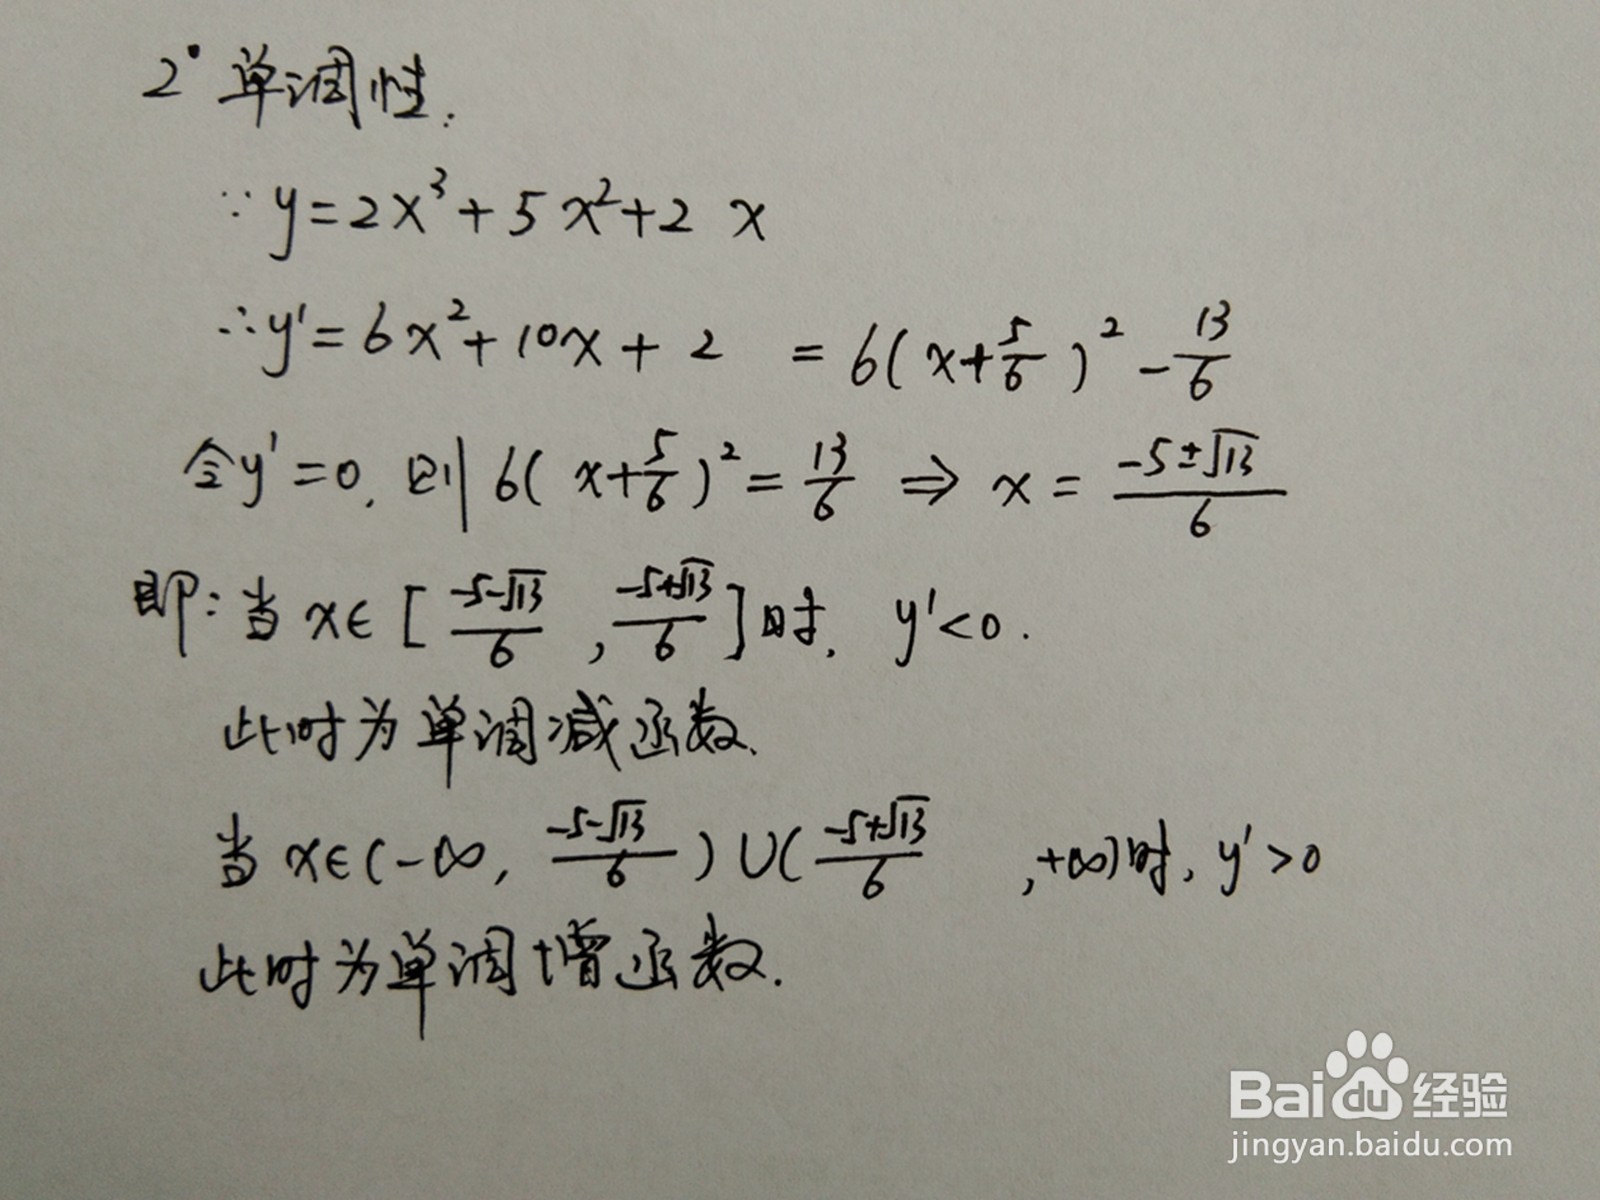 2° 单调性.
∵ y=2x³+5x²+2 x
∴ y'=6x²+10x+2 =6(x+5/6)²-13/6
令y'=0, 则 6(x+5/6)²=13/6 ⇒ x=(-5±√13)/6
即: 当 x∈[(-5-√13)/6, (-5+√13)/6]时, y'<0.
此时为单调减函数.
当 x∈(-∞, (-5-√13)/6)∪((-5+√13)/6, +∞)时, y'>0
此时为单调增函数.
Bai du 经验
jingyan.baidu.com